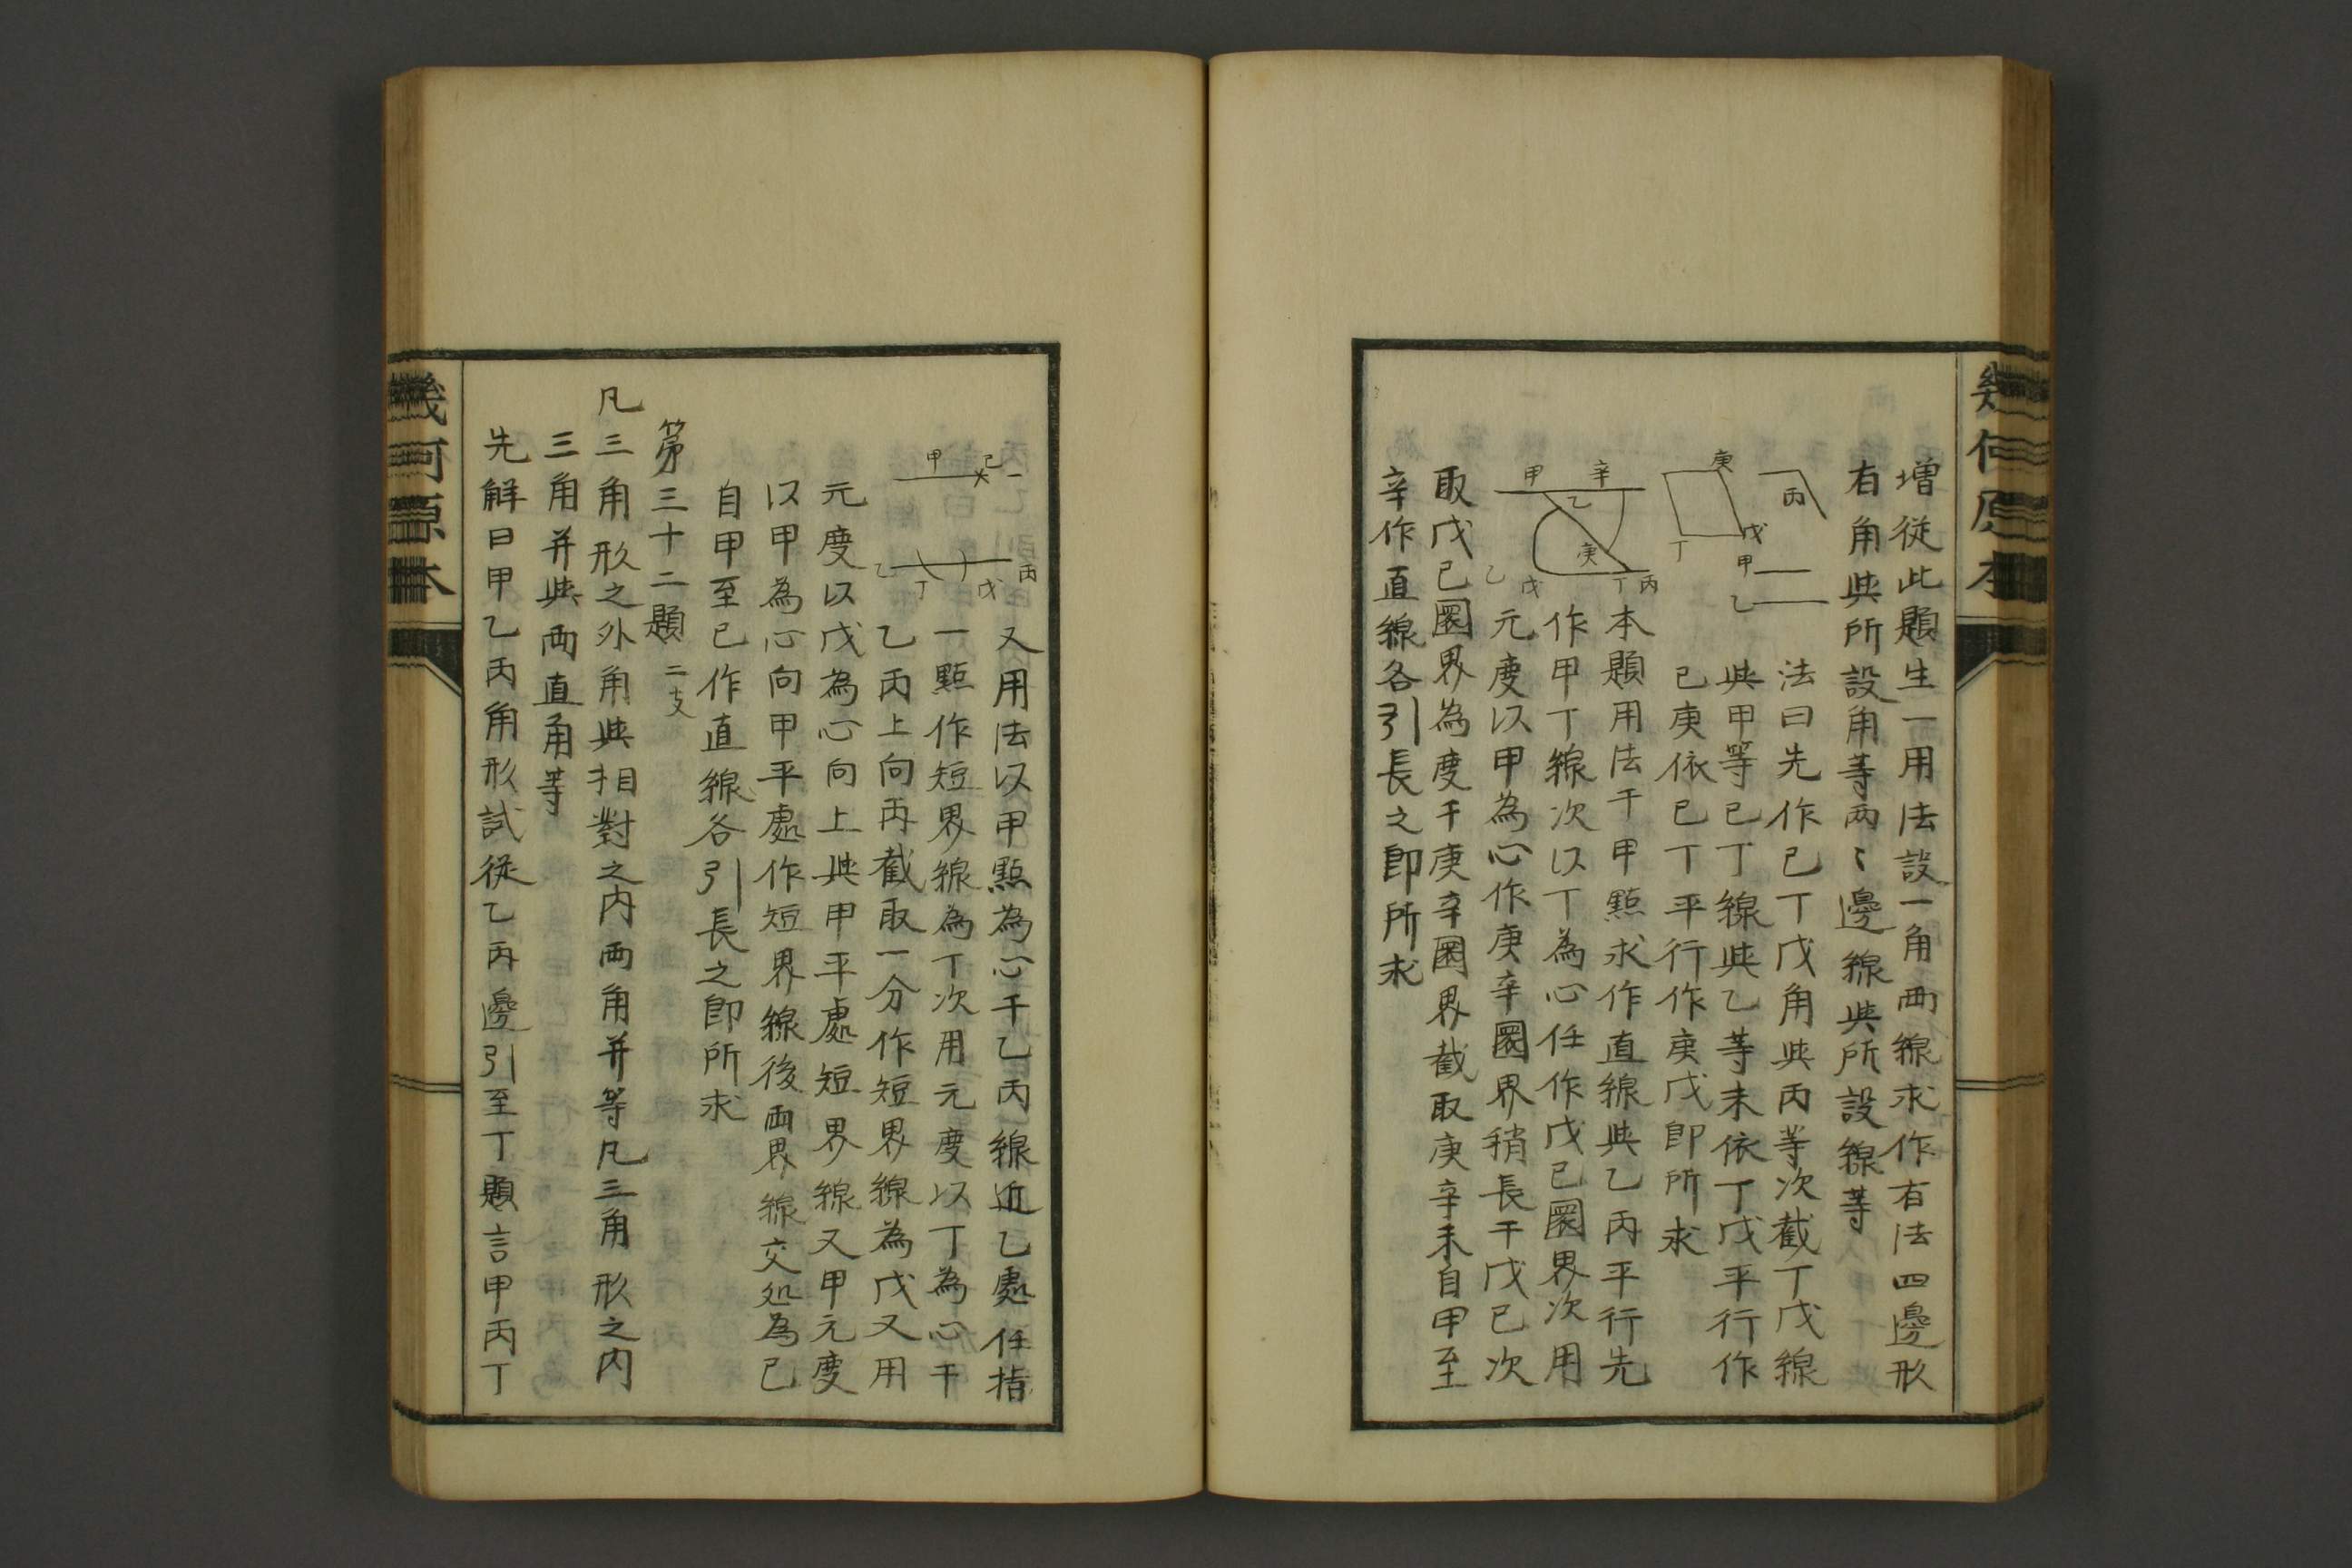 幾何原本
増従此題生一用法設一角両線求作有法四邊形
有角與所設角等两〻邊線與所設線等
丙
庚
戊
丁
甲
乙
法曰先作己丁戊角與丙等次截丁戊線
與甲等己丁線與乙等末依丁戊平行作
己庚依己丁平行作庚戊即所求
甲
辛
乙
庚
乙
戊
丁
丙
本題用法于甲點求作直線與乙丙平行先
作甲丁線次以丁為心任作戊己圜界次用
元度以甲為心作庚辛圜界稍長于戊己次
取戊己圜界為度于庚辛圜界截取庚辛末自甲至
辛作直線各引長之即所求
甲
己
乙
丁
戊
丙
又用法以甲點為心于乙丙線近乙處任指
一點作短界線為丁次用元度以丁為心于
乙丙上向丙截取一分作短界線為戊又用
元度以戊為心向上與甲平處短界線又甲元度
以甲為心向甲平處作短界線後両界線交処為己
自甲至己作直線各引長之即所求
第三十二題 二支
凡三角形之外角與相對之内両角并等凡三角形之内
三角并與両直角等
先解曰甲乙丙角形試従乙丙邊引至丁題言甲丙丁
幾何原本